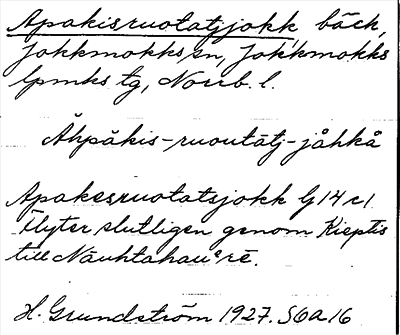 Apakisruotatjjokk bäck,
Jokkmokks sn, Jokkmokks
lpmks tg, Norrb. l.
Åhpåkis-ruoutatj-jåhkå
Apakesruotatsjokk G 14 c 1
flyter slutligen genom Kieptis
till Näuhtahauᵉrē.
H. Grundström 1927. S6a16